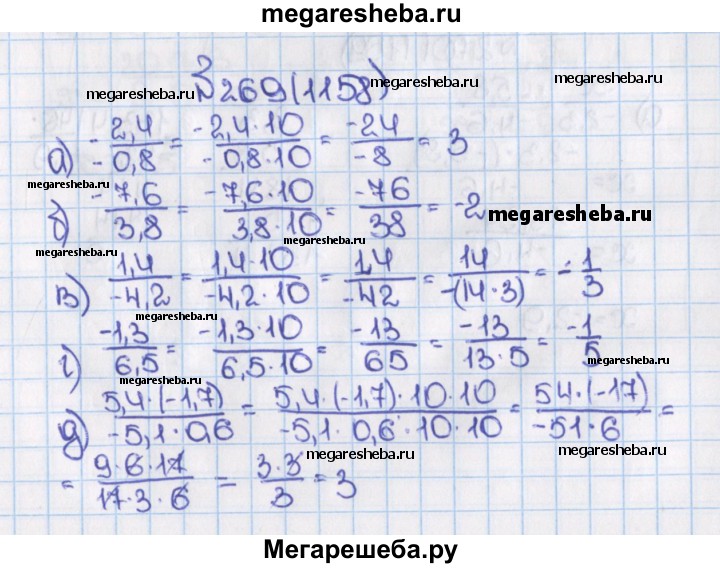 megaresheba.ru
№ 269 (1158)
megaresheba.ru megaresheba.ru
а) -2,4/-0,8 = -2,4·10/-0,8·10 = -24/-8 = 3
megaresheba.ru megaresheba.ru
б) -7,6/3,8 = -7,6·10/3,8·10 = -76/38 = -2
megaresheba.ru
megaresheba.ru
в) 1,4/-4,2 = 1,4·10/-4,2·10 = 14/-42 = 14/-(14·3) = -1/3
megaresheba.ru
г) -1,3/6,5 = -1,3·10/6,5·10 = -13/65 = -13/13·5 = -1/5
megaresheba.ru megaresheba.ru
д) 5,4·(-1,7)/-5,1·0,6 = 5,4·(-1,7)·10·10/-5,1·0,6·10·10 = 54·(-17)/-51·6 =
megaresheba.ru megaresheba.ru
= 9·6·17/17·3·6 = 3·3/3 = 3
megaresheba.ru megaresheba.ru
Мегарешеба.ру